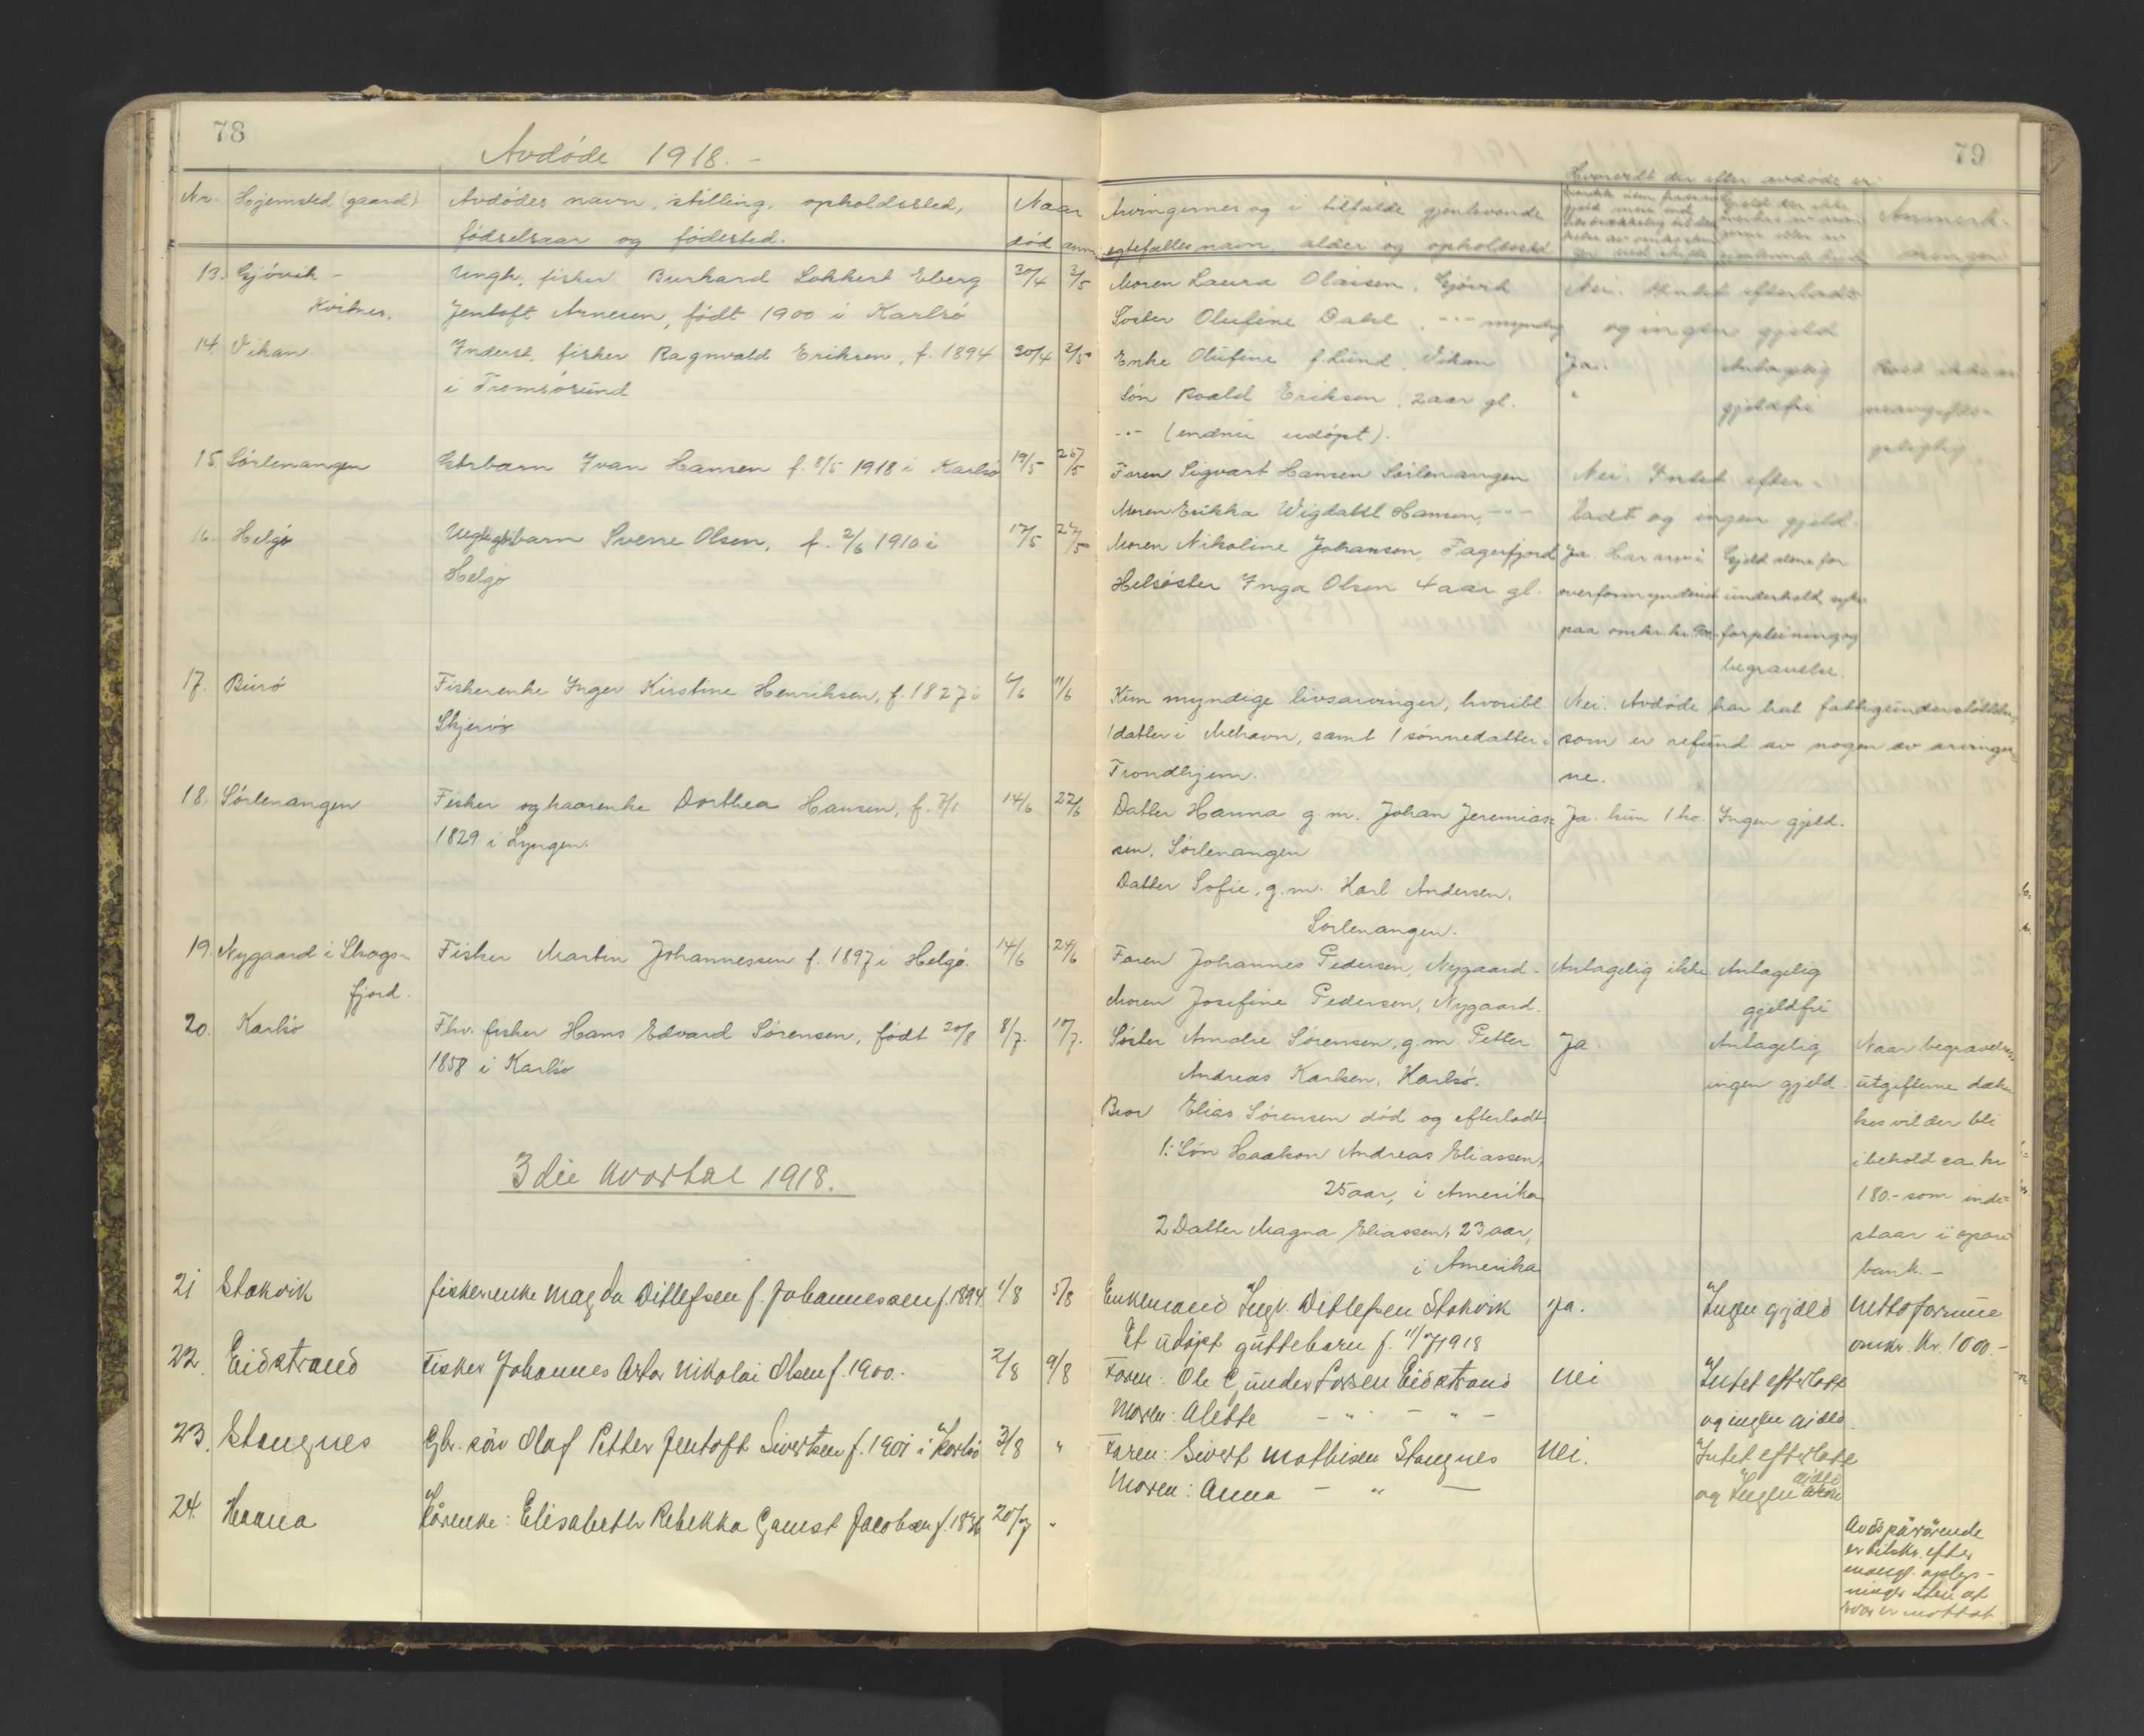 78
Avdøde 1918. -
Nr. Hjemsted (gaard) Avdødes navn, stilling, opholdssted, Naar
fødselsaar og fødested. død anm
13. Gjövik - Ungk. fisker Burhard Lokkert Eberg 30/4 3/5
Kvitnes. Jentoft Arnesen, født 1900 i Karlsö
14. Vikan. Inderst, fisker Ragnvald Eriksen, f. 1894 30/4 2/5
i Tromsösund
15. Sörlenangen Gbrbarn Ivan Hansen f. 8/5 1918 i Karlsö 19/5 25/5
16. Helgö barn Sverre Olsen, f. 2/6 1910 i 17/5 27/5
Helgö
17. Burö Fiskerenke Inger Kirstine Henriksen, f. 1827 i 6/6 11/6
Skjervö
18. Sörlenangen Fisker og kaarenke Dorthea Hansen, f. 7/1 14/6 22/6
1829 i Lyngen.
19. Nygaard i Skogs- Fisker Martin Johannessen f. 1897 i Helgö. 14/6 24/6
fjord.
20. Karlsö Fhv. fisker Hans Edvard Sörensen, født 20/8 8/7. 10/7.
1858 i Karlsö
3die kvartal 1918.
21 Stakvik fiskerenke Magda Ditlefsen f. Johannessen f. 1894 1/8 5/8
22. Eidstrand Fisker Johannes Artor Nikolai Olsen f. 1900. 2/8 9/8
23. Stangnes Gbr. sön Olaf Petter Jentoft Sivertsen f. 1901 i Karlsö 3/8 "
24. Haana Kårenke: Elisabeth Rebekka Gamst Jacobsen f. 1836 20/7 "
79
Hvorvidt der efter avdøde er:
Arvingernes og i tilfælde gjenlevende Anmerk-
egtefælles navn alder og opholdssted ninger
Moren Laura Olaisen, Gjövik Nei. Intet efterladt
Söster Olufine Dahl, -"- myndig og ingen gjeld
Enke Olufine f. Lund, Vikan Ja. Antagelig
Sön Roald Eriksen, 2 aar gl. " gjeldfri
-"- (endnu udöpt).
Faren Sigvart Hansen Sörlenangen Nei. Intet efter-
Moren Erikka Wigdahl Hansen, -"- ladt og ingen gjeld.
Moren Nikoline Johansen, Fagerfjord Ja. Har arv i Gjeld alene for
Helsöster Inga Olsen 4 aar gl. overformynderiet underhold, syke
paa omkr. kr. forpleining og
begravelse.
Kun myndige livsarvinger, hvoribl. Nei. Avdøde har hat fattigunderstöttelse,
1 datter i Mehavn, samt 1 sönnedatter i som er refund. av nogen av arvinger
Trondhjem. ne.
Datter Hanna g. m. Johan Jeremias- Ja. kun 1 ko. Ingen gjeld.
sen, Sörlenangen
Datter Sofie, g. m. Karl Andersen,
Sörlenangen.
Faren Johannes Pedersen, Nygaard. Antagelig ikke Antagelig
Moren Josefine Pedersen, Nygaard. gjeldfri
Söster Amalie Sörensen, g. m. Petter Ja. Antagelig Naar begravelses
Andreas Karlsen, Karlsö. ingen gjeld. utgifterne dæk
Bror Elias Sörensen död og efterladt: kes vil der bli
1: Sön Haakon Andreas Eliassen, i behold ca. kr
25 aar, i Amerika 180.- som inde-
2 Datter Magna Eliassen, 23 aar, staar i spare
i Amerika bank. -
Enkemand Ingv. Ditlefsen Stakvik Ja. Ingen gjeld Nettoformue
Et udöpt guttebarn f. 11/7 1918 omkr. kr. 1000.-
Faren: Ole Gunder Larsen Eidstrand Nei Intet efterlatt
Moren: Alette - " - " - og ingen gjeld.
Faren: Sivert Mathisen Stangnes Nei. Intet efterlatt
Moren: Anna - " - og Ingen gjeld
Avds pårörende
er tilskr. efter
mangl. oplys-
ninger uten at
svar er mottat